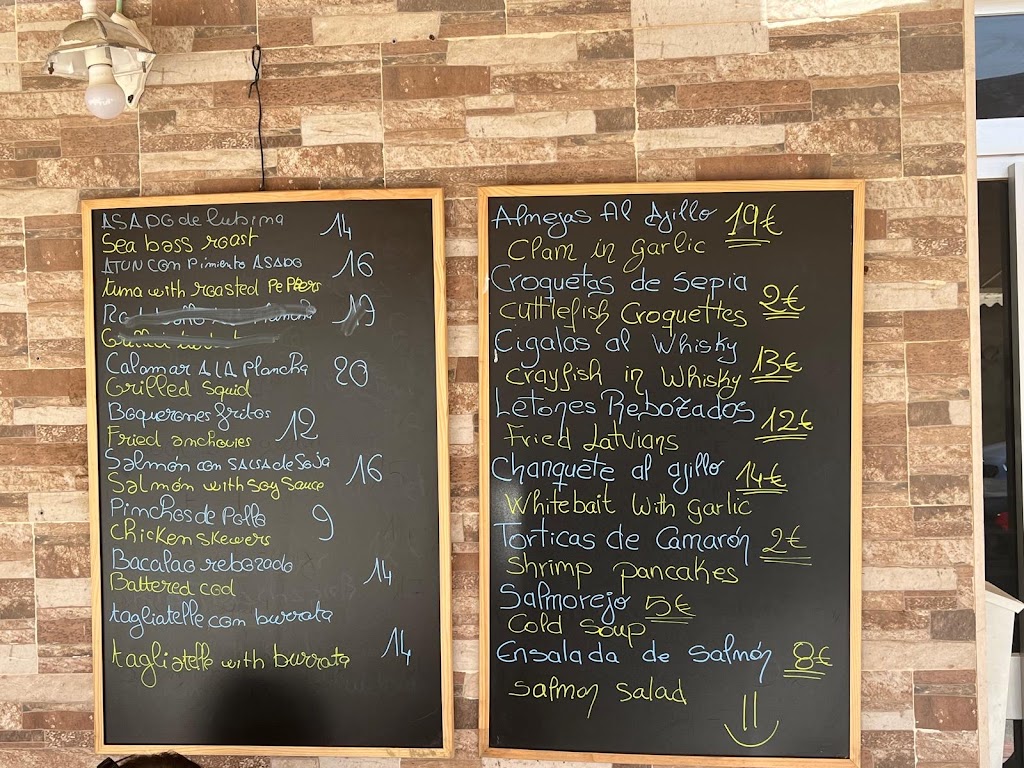 ASADO de lubina 14
Sea bass roast
ATUN con Pimiento ASADO 16
tuna with roasted PePPers
Calamar A lA Plancha 20
Grilled Squid
Boquerones fritos 12
Fried anchovies
Salmón con SALSA de Soja 16
Salmón with soy Sauce
Pinchos de Pollo 9
Chicken skewers
Bacalao rebozado 14
Battered cod
tagliatelle con burrata
tagliatelle with burrata 14
Almejas Al Ajillo 19€
Clam in garlic
Croquetas de Sepia
Cuttlefish Croquettes 2€
Cigalas al Whisky
Crayfish in Whisky 13€
Letones Rebozados 12€
Fried Latvians
Chanquete al ajillo 14€
Whitebait With garlic
Torticas de Camarón 2€
Shrimp pancakes
Salmorejo 5€
Cold Soup
Ensalada de Salmón 8€
Salmon Salad